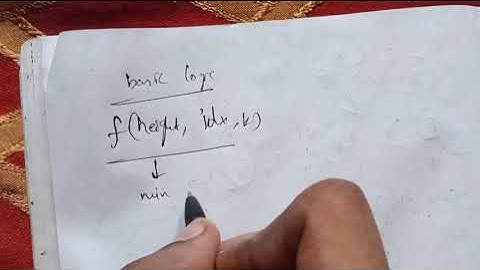 basic logic
f(height, idx, k)
↓
min